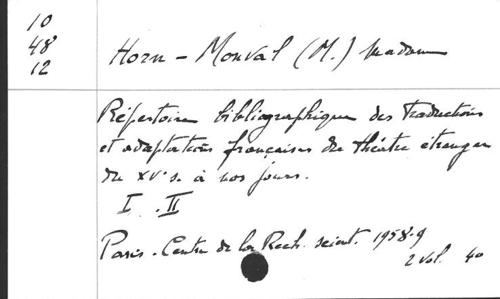 10
48
12
Horn-Monval (M.) Madame
Répertoire bibliographique des Traductions
et adaptations françaises du théâtre étranger
du XVe s. à nos jours.
I. II
Paris. Centre de la Rech. scient. 1958-9
2 vol. 4o